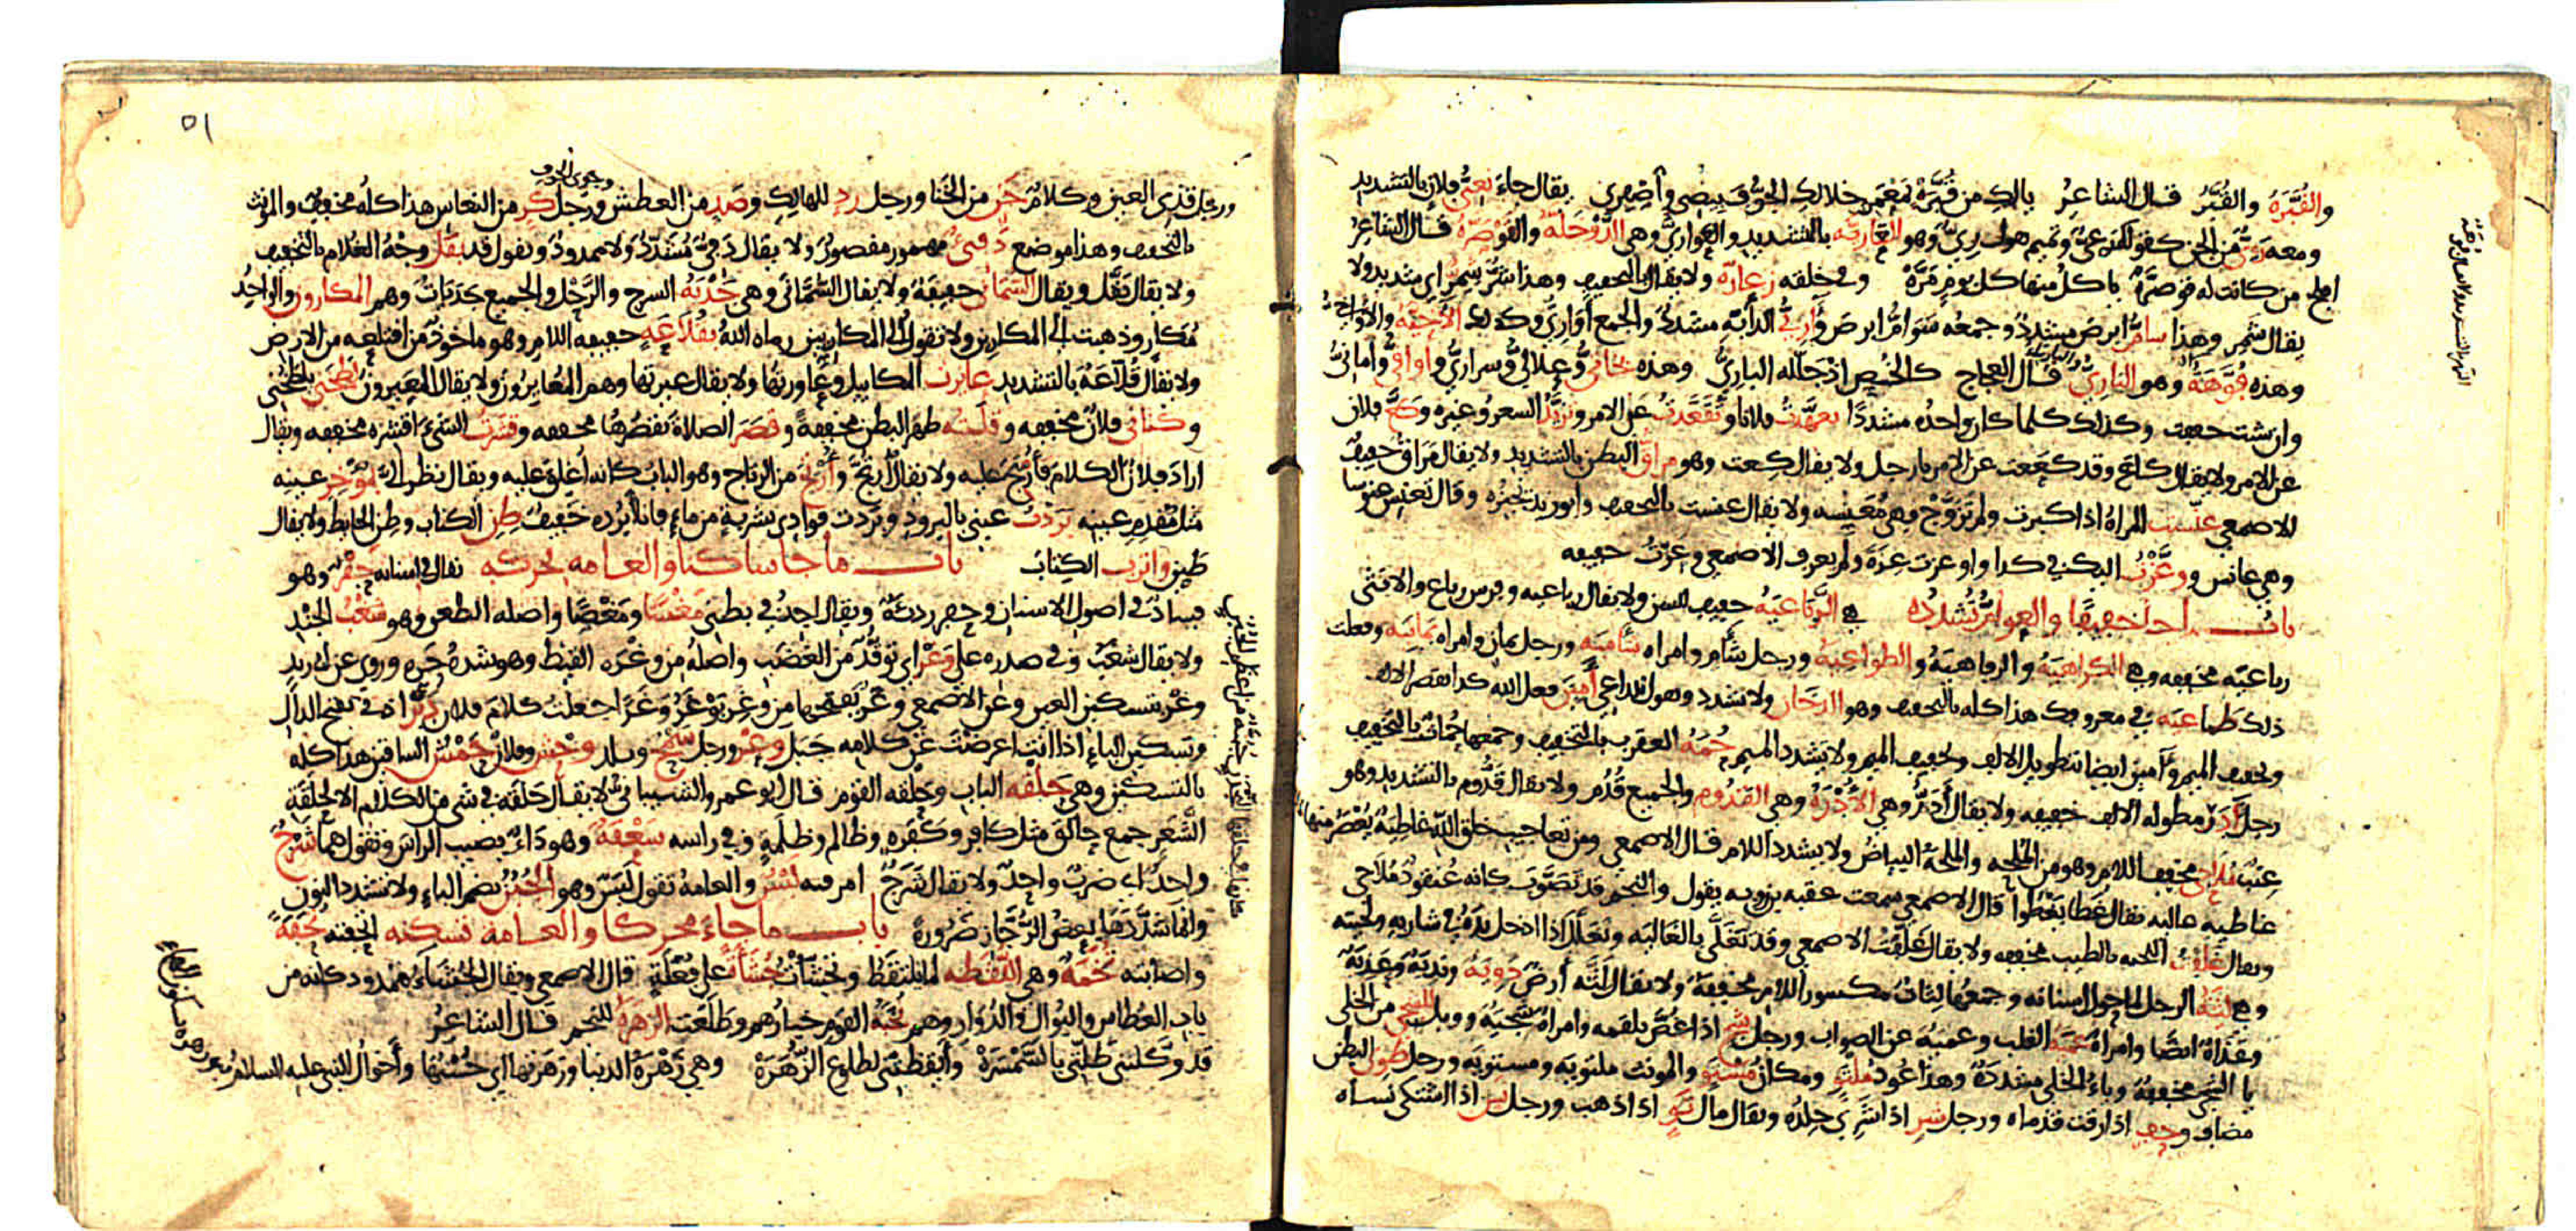 والقُبَّرَةُ والقُبَّرُ قال الشاعرُ يالكِ من قُبَّرَةٍ بمَعْمَرِ خلالكِ الجوُّ فبيضي وأصفري يقال جاءَ بعيّ فلان بالتشديد
ومعه من الجن كقولك وهو العاريّة بالتشديد والعواريّ وهي الدَّوْخَلَّةُ والقَوْصَرَّةُ قال الشاعرُ
افلح من كانت له قوصرَّهْ ياكل منها كل يوم مرَّهْ وفي خلقه زعارّة ولا يقال بالتخفيف وهذا شرٌّ شِمِرٌّ اي شديد ولا
يقال شمر وهذا سامُّ ابرص مشددٌ وجمعه سَوَامُّ ابرص وآريُّ الدابّه مشددٌ والجمع أواريُّ وكذلك
وهذه فُوَّهَةُ وهو الباريُّ قال العجاج كالخُصِّ اذ جلّله الباريُّ وهذه بخاتيُّ وعلاليُّ وسراريُّ وأواقيُّ وأمانيُّ
وان شئت خففت وكذلك كلما كان واحدُه مشددًا تعهّدتُ فلانا وتَقَعَّدتُ عن الامر وتزيَّدَ السعرُ وغيره وكعَّ فلان
عن الامر ولا يقال كاع وقد كععت عن الامر يا رجل ولا يقال كِعت وهو مراقُّ البطن بالتشديد ولا يقال مَرَاقُ خفيفٌ
الاصمعي عنّست المراةُ اذا كبرت ولم تزوَّجْ وهي مُعَنِّسه ولا يقال عنست بالتخفيف وابو زيد يجيزه وقال تعنس عنوسا
وهي عانس ووعَّزْتُ اليك في كذا واوعزت ولم يعرف الاصمعي وعزتُ خفيفه
باب ما جا خفيفًا والعوامُّ تُشَدِّدُه هي الرَّباعيَةُ خفيف السن ولا يقال رباعيه وفرس رباع والانثى
رباعيَه مخففه وهي الكراهيَةُ والرفاهيَةُ والطواعِيَةُ ورجل شآم وامراه شآميَه ورجل يمان وامراه يمانيَه وفعلت
ذلك طماعيَه في معروفك هذا كله بالتخفيف وهو الدخَان ولا تشدد وهو الداعي أمين فعل الله كذا بقصر الالف
وتخفيف الميم وآمين ايضا بتطويل الالف وتخفيف الميم ولا تشدد الميم حُمَةُ العقرب بالتخفيف وجمعها حُمَاتٌ بالتخفيف
رجل آدَرُ مطوله الالف خفيفه ولا يقال أدَرُّ وهي الأُدْرَةُ وهي القَدُوم والجميع قُدُم ولا يقال قَدُّوم بالتشديد وهو
عنَبٌ مُلاحيّ مخفف اللام وهو من المُلحه والملحة البياضُ ولا يشدد اللام قال الاصمعي ومن تعاجيب خلق الله غاطِيَةٌ يُعصَرُ منها
غاطيه عاليه يقال غَطَا يَغْطُوا قال الاصمعي سمعت عقبه بن روبه يقول والنجم قد تَصَوَّبَ كانه عُنقودُ مُلاحي
ويقال غَلَفْتُ لحيته بالطيب مخففه ولا يقال غَلَّفْتُ الاصمعي وقد تَغَلَّى بالغَاليَه وتغلَّل اذا ادخل يدَهُ في شاربه ولحيته
وهي لِثَةُ الرجل لما حول اسنانه وجمعُها لِثَاتٌ مكسور اللام مخففة ولا يقال لَثَّه أرضٌ دوِيَةٌ ونديَةٌ وعَذيَةٌ
وعَذَاةٌ ايضًا وامراةٌ عميَةُ القلب وعميَةٌ عن الصواب ورجل شجٍ اذا غُصَّ بلقمه وامراةٌ شجيَةٌ وويل للشجي من الخلي
يا الشجي مخففة وياءُ الخلي مشددَةٌ وهذا عُودٌ ملتوٍ ومكانٌ مُسْتوٍ والمونث ملتويَه ومستويَه ورجل طَوِي البطن
مضاف وحفٍ اذا رقت قدماه ورجل شرٍ اذا شري جلدُه ويقال مال تَوٍ اذا ذهب ورجل نسٍ اذا اشتكى نَساه
٥١
ورجل قذي العين وكلامٌ خَنٍ من الخَنا ورجل ردٍ للهالك وصَدٍ من العطش ورجل كَرٍ من النعاس هذا كلُّه مخففٌ والمونث
وجوي الجوف
بالتخفيف وهذا موضع دَفِئٌ مهموز مقصورٌ ولا يقال دَفيٌّ مُشَدَّدٌ ولا ممدودٌ وتقول قد بَقَل وجهُ الغلام بالتخفيف
ولا يقال بَقَّل ويقال السُّمَانى خفيفةٌ ولا يقال السُّمَّانى وهي جَدْيَةُ السرج والرَّحْل والجميع جَدَيَاتٌ وهم المكارون والواحدُ
مُكَارٍ وذهبت الى المكارين ولا تقول الى المكاريين رماه اللهُ بقُلاعَه خفيفه اللام وهو ماخوذٌ من اقتلعه من الارض
ولا يقال قُلَّاعَهُ بالتشديد عايرت المكاييل وعاورتها ولا يقال عيرتها وهم المُعايِرُون ولا يقال المعَيِّرون لَطَخَني يلطخُني
وكناني فلانٌ مخففه وقلَبْتُه ظهرًا لبطن مخففةً وقصَرَ الصلاةَ يَقصُرُها مخففه وقشَرْتُ الشيءَ اقشره مخففه ويقال
اراد فلانٌ الكلامَ فأُرْتِجَ عليه ولا يقال أُرتُجَّ وأُرْتِجَ من الرتاج وهو البابُ كانه أُغلِقَ عليه ويقال نظر اليَّ بمؤْخِرِ عينِه
مثل مُقْدِمِ عينِه بَرَدتُ عيني بالبرود وبَرَدتُ فوادي بشربةٍ من ماءٍ فانا أبرُدُه خفيفٌ طِنِ الكتاب وطِنِ الحايط ولا يقال
طَيِّن واترب الكتابَ باب ما جا ساكنا والعامه تحركه يقال في اسنانه حَفْرٌ وهو
فسادٌ في اصول الاسنان وحفر رديَّةٌ ويقال اجدُ في بطني مَغْسًا ومَغْصًا واصله الطعن وهو شَغْبُ الجُنْدِ
ولا يقال شغَبٌ وفي صدره علي وَغْرٌ اي توقُّدٌ من الغضب واصلُه من وغْرَةِ القيظ وهو شدةُ حرِّه وروي عن ابي زيد
وغْر بتسكين الغين وعن الاصمعي وغَر بفتحها من وغِر يوغَرُ وغَرًا جعلتُ كلامَ فلانٍ دَبْرَ اذني بفتح الدال
وتسكين الباءِ اذا انت اعرضتَ عن كلامه جَبَل وعْرٌ ورجل سَمْحٌ وبلد وحْشٌ وفلانٌ حَمْشُ الساقين هذا كله
بالتسكين وهي حَلْقه الباب وحلْقه القوم قال ابو عمرو الشيباني لا يقال حَلَقَه في شي من الكلام الا لحَلَقَةِ
الشَّعَرِ جمع حالق مثل كافر وكَفَره وظالم وظَلَمَةٍ وفي راسه سَعْفَةٌ وهو داءٌ يصيب الراسَ وتقول هما شَرْجٌ
واحدٌ اي ضربٌ واحدٌ ولا يقال شَرَجٌ امر فيه لَبْسٌ والعامةُ تقول لَبَسٌ وهو الجُبُنُ بضم الباءِ ولا تشدد النون
وانما شدَّدَها بعضُ الرُّجَّاز ضرورةً باب ما جاءَ محركا والعامة تسكنه اتحفته تُحَفَةً
واصابته تُخَمَةٌ وهي اللُّقَطَه لما يلتقَطُ وتجشَّأتُ جُشَأَةً على فُعَلَةٍ قال الاصمعي ويقال الجُشَاءُ ممدود كانه من
باب العُطاس والبُوَال والدُّوَار وهم نُخَبَةُ القوم خيارُهم وطلَعَت الزُّهَرَةُ للنجم قال الشاعرُ
قد وكَّلَتْني طلّتي بالسَّمْسَرَهْ وأيقظتْني لطلوع الزُّهَرَهْ وهي زَهْرَةُ الدنيا وزهَرتها اي حُسْنُها وأخوالُ النبي عليه السلامُ بنو زهره